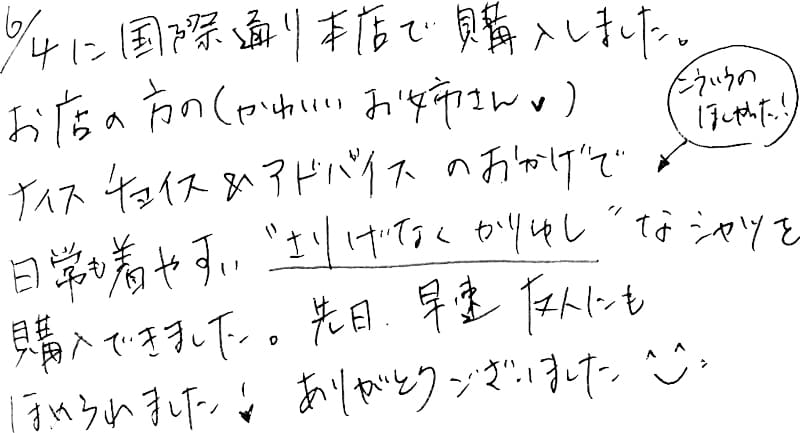 6/4に国際通り本店で購入しました。
お店の方の(かわいい お姉さん♥)
こういうの
ほしかった!
ナイスチョイス&アドバイス のおかげで
日常も着やすい “さりげなく かりゆし” なシャツを
購入できました。先日、早速 友人にも
ほめられました! ありがとうございました ^‿^